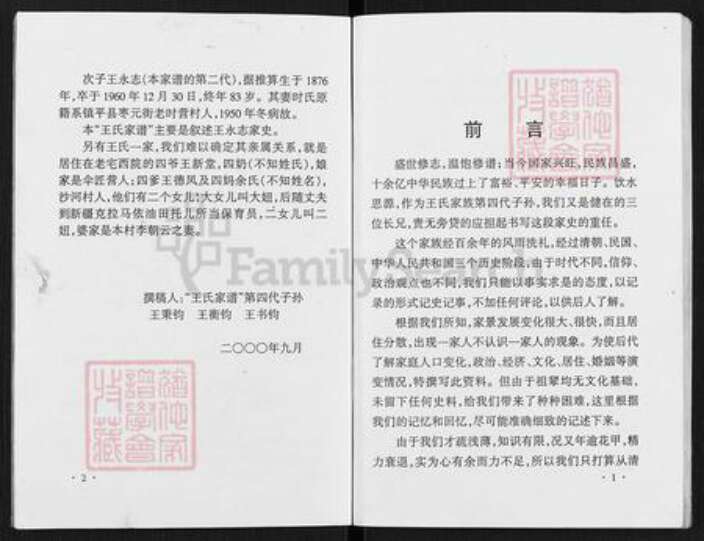 次子王永志(本家谱的第二代),据推算生于1876
年,卒于1960年12月30日,终年83岁。其妻时氏原
籍系镇平县枣元街老时营村人,1950年冬病故。
本“王氏家谱”主要是叙述王永志家史。
另有王氏一家,我们难以确定其亲属关系,就是
居住在老宅西院的四爷王新堂,四奶(不知姓氏),娘
家是伞匠营人;四爹王德凤及四妈余氏(不知姓名),
沙河村人,他们有二个女儿,大女儿叫大妞,后随丈夫
到新疆克拉马依油田托儿所当保育员,二女儿叫二
妞,婆家是本村李朝云之妻。
撰稿人:“王氏家谱”第四代子孙
王秉钧 王衡钧 王书钧
二〇〇〇年九月
·2·
前言
盛世修志,温饱修谱;当今国家兴旺,民族昌盛,
十余亿中华民族过上了富裕、平安的幸福日子。饮水
思源,作为王氏家族第四代子孙,我们又是健在的三
位长兄,责无旁贷的应担起书写这段家史的重任。
这个家族经百余年的风雨洗礼,经过清朝、民国、
中华人民共和国三个历史阶段;由于时代不同,信仰、
政治观点也不同,我们只能以事实求是的态度,以记
录的形式记史记事,不加任何评论,以供后人了解。
根据我们所知,家景发展变化很大、很快,而且居
住分散,出现一家人不认识一家人的现象。为使后代
了解家庭人口变化,政治、经济、文化、居住、婚姻等演
变情况,特撰写此资料。但由于祖辈均无文化基础,
未留下任何史料,给我们带来了种种困难,这里根据
我们的记忆和回忆,尽可能准确细致的记述下来。
由于我们才疏浅薄,知识有限,况又年逾花甲,精
力衰退,实为心有余而力不足,所以我们只打算从清
·1·
FamilySearch